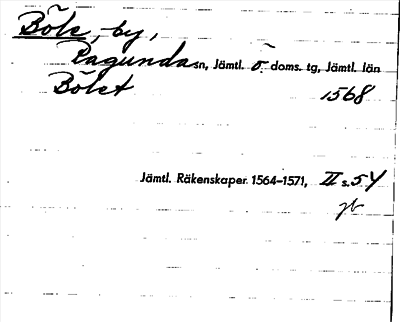 Böle, by,
Ragunda sn, Jämtl. ö. doms. tg, Jämtl. län
Bölet 1568
Jämtl. Räkenskaper 1564–1571, II s. 54